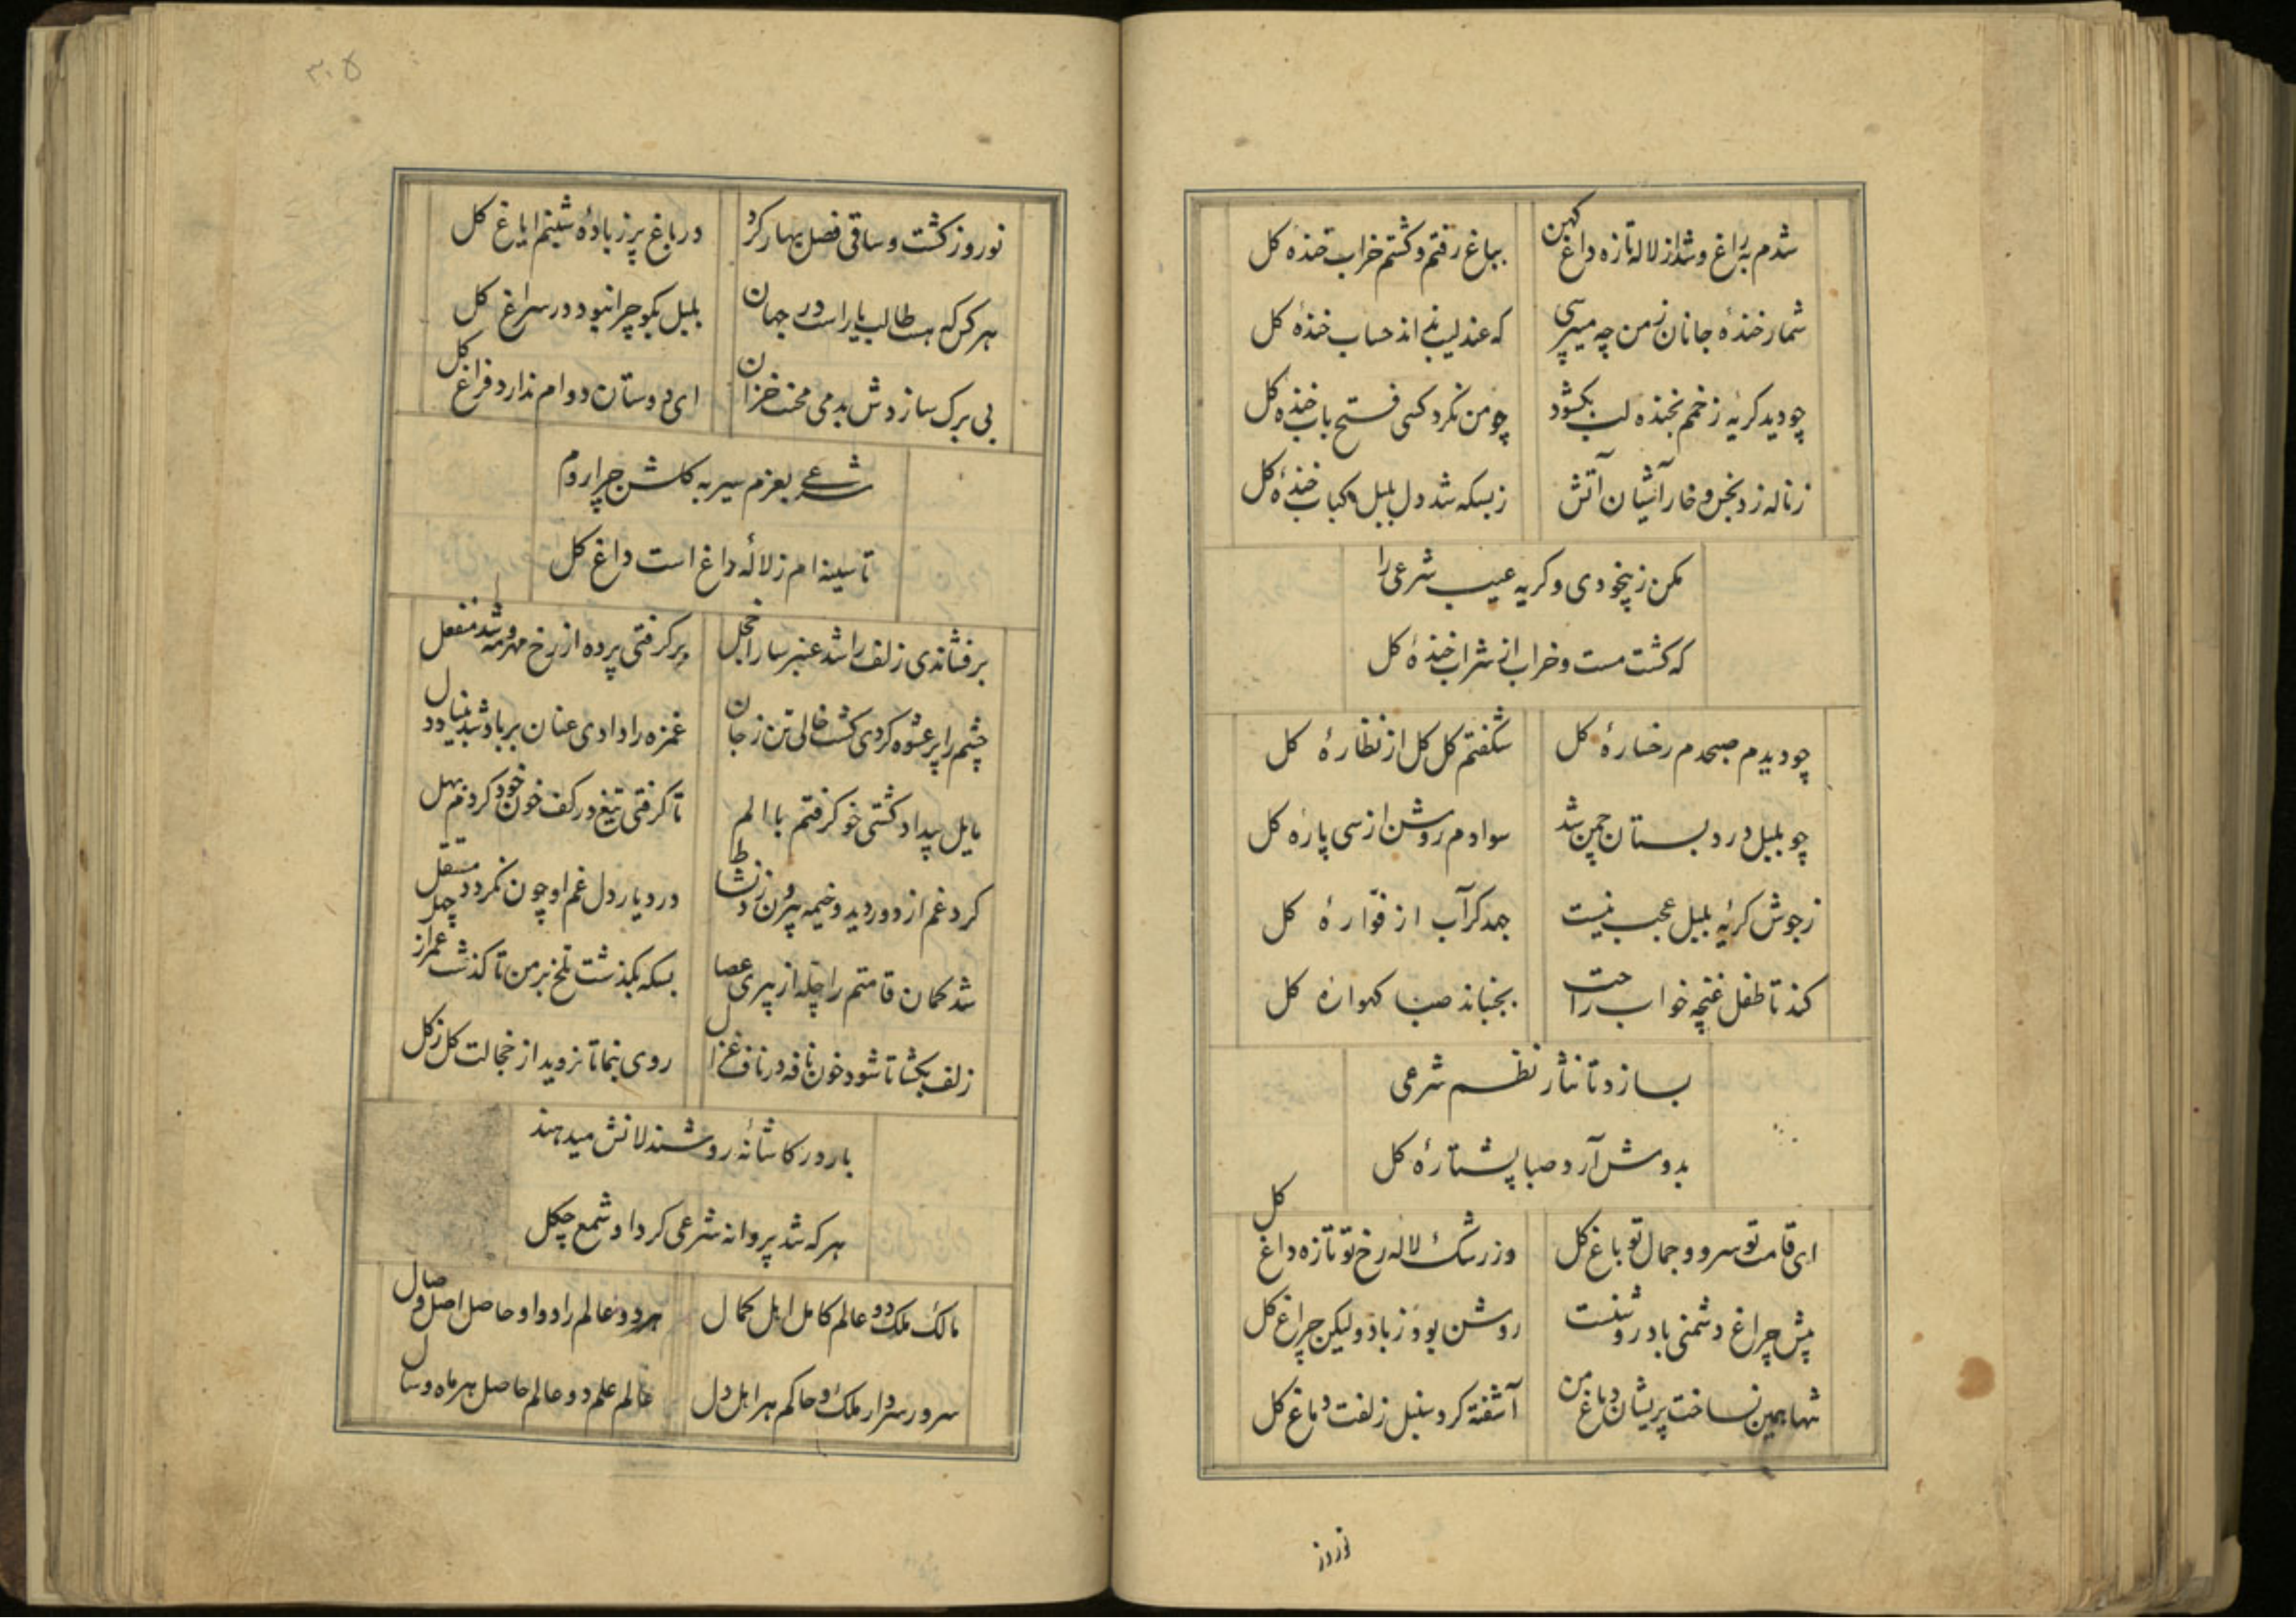 شدم براغ و شد از لاله تازه داغ کهن بباغ رفتم و کشتم خراب خندهٔ کل
شمار خندهٔ جانان ز من چه میپرسی که عندلیب نداند حساب خندهٔ کل
چو دید کریه زخمم بخنده لب بکشود چو من نکرد کسی فتح باب خندهٔ کل
ز ناله زد بخس و خار آشیان آتش ز بسکه شد دل بلبل کباب خندهٔ کل
مکن ز بیخودی و کریه عیب شرعی را
که کشت مست و خراب از شراب خندهٔ کل
چو دیدم صبحدم رخسارهٔ کل شکفتم کل کل از نظارهٔ کل
چو بلبل در دبستان چمن شد سوادم روشن از سی پارهٔ کل
ز جوش کریهٔ بلبل عجب نیست جهد کر آب از فوارهٔ کل
کند تا طفل غنچه خواب راحت بجنباند صبا کهوارهٔ کل
بسازد تا نثار نظم شرعی
بدوش آرد صبا پشتارهٔ کل
ای قامت تو سرو و جمال تو باغ کل وز رشک لاله رخ تو تازه داغ کل
پیش چراغ دشمنی باد روشنست روشن بود ز باد ولیکن چراغ کل
تنها همین نساخت پریشان دماغ من آشفته کرد سنبل زلفت دماغ کل
نوروز
۳۰۵
نوروز کشت و ساقی فصل بهار کرد در باغ پر ز بادهٔ شبنم ایاغ کل
هر کس که هست طالب یار است در جهان بلبل بکو چرا نبود در سراغ کل
بی برک سازدش بدمی محنت خزان ای دوستان دوام ندارد فراغ کل
شرعی بعزم سیر به کلشن چرا روم
تا سینه ام ز لالهٔ داغ است داغ کل
برفشاندی زلف را شد عنبر سارا خجل برکرفتی پرده از رخ مهر و مه شد منفعل
چشم را پر عشوه کردی کشت خالی تن ز جان غمزه را دادی عنان بر باد شد بنیاد دل
مایل بیداد کشتی خو کرفتم با الم تا کرفتی تیغ در کف خون خود کردم بهل
کرد غم از دور دید و خیمه بیرون زد نشاط در دیار دل غم او چون نکردد مستقل
شد کمان قامتم را چله از پیری عصا بسکه بکذشت تلخ بر من تا کذشت عمر از چهل
زلف بکشا تا شود خون نافه در ناف غزال روی بنما تا نروید از خجالت کل ز کل
بار در کاشانهٔ روشندلانش میدهند
هر که شد پروانه شرعی کرد او شمع چکل
مالک ملک دو عالم کامل اهل کمال هر دو عالم را دوا و حاصل اصل وصال
سرور سردار ملک و حاکم هر اهل دل عالم علم دو عالم حاصل هر ماه و سال